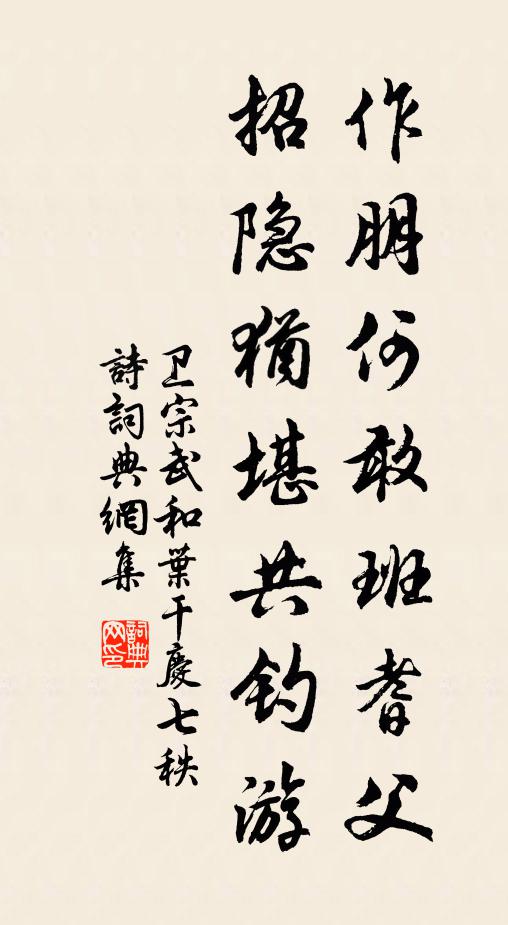 作朋何敢班耆父
招隐猶堪共钓游
卫宗武和葉干慶七秩
詩詞典網集
詞典网印